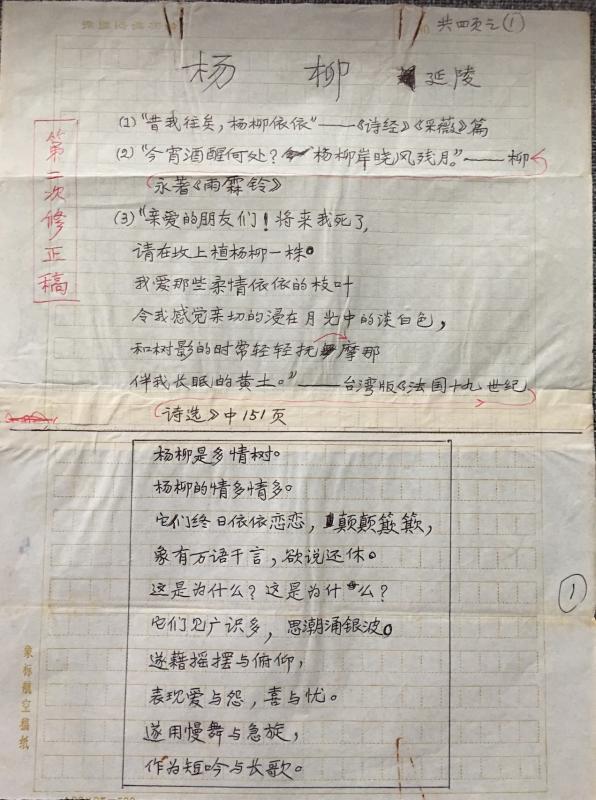 共四页之①
杨 柳 延陵
第二次修正稿
(1)“昔我往矣，杨柳依依”——《诗经》《采薇》篇
(2)“今宵酒醒何处？杨柳岸晓风残月。”——柳
永著《雨霖铃》
(3)“亲爱的朋友们！将来我死了，
请在坟上植杨柳一株。
我爱那些柔情依依的枝叶
令我感觉亲切的浸在月光中的淡白色，
和树影的时常轻轻抚摩那
伴我长眠的黄土。”——台湾版《法国十九世纪
诗选》中151页
杨柳是多情树。
杨柳的情多情多。
它们终日依依恋恋，颠颠簸簸，
象有万语千言，欲说还休。
这是为什么？这是为什么？
它们见广识多，思潮涌银波。
遂藉摇摆与俯仰，
表现爱与怨，喜与忧。
遂用慢舞与急旋，
作为短吟与长歌。
①
象标航空稿纸